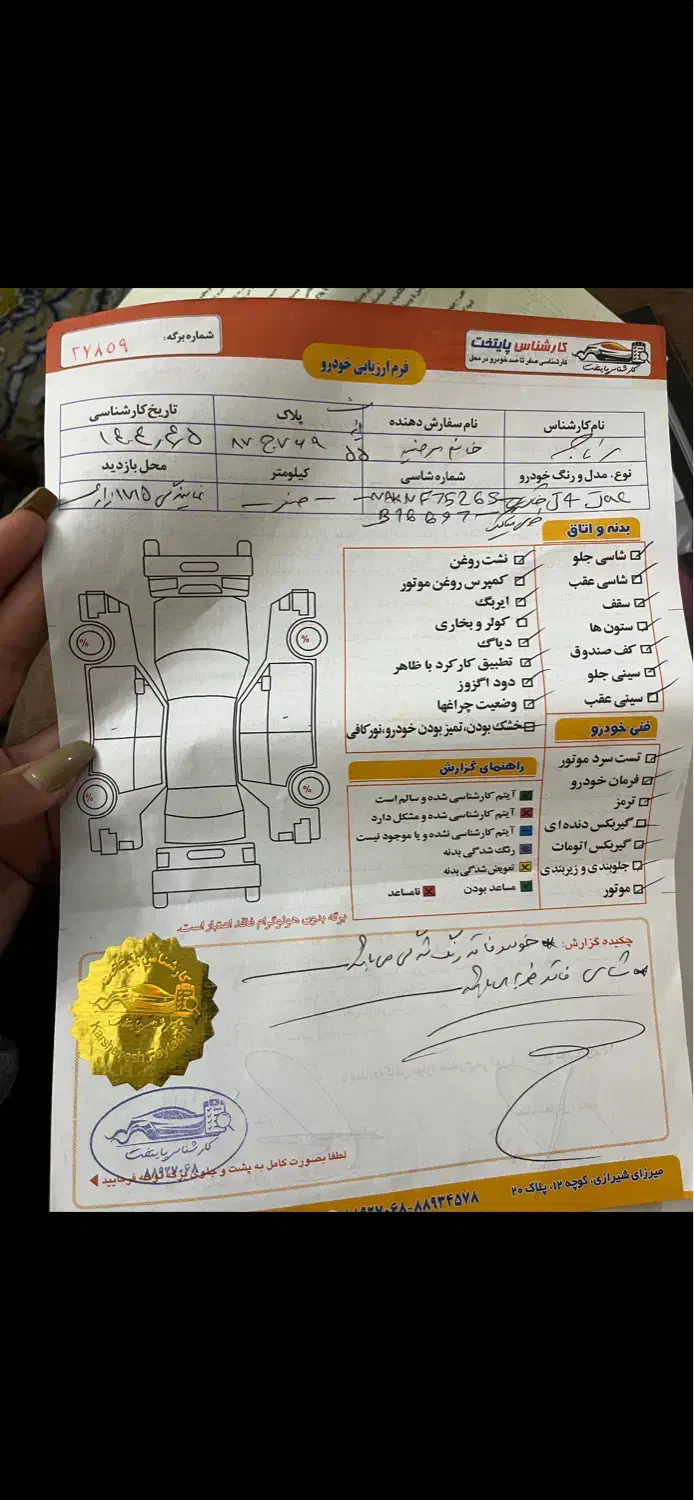 کارشناس پایتخت
کارشناسی صفر تا صد خودرو در محل
کارشناس پایتخت
فرم ارزیابی خودرو
شماره برگه: ۲۷۸۵۹
نام کارشناس
نام سفارش دهنده
پلاک
تاریخ کارشناسی
خانم مرضیه
نوع، مدل و رنگ خودرو
شماره شاسی
کیلومتر
محل بازدید
J4 Jac
صفر
بدنه و اتاق
شاسی جلو
شاسی عقب
سقف
ستون ها
کف صندوق
سینی جلو
سینی عقب
فنی خودرو
تست سرد موتور
فرمان خودرو
ترمز
گیربکس دنده ای
گیربکس اتومات
جلوبندی و زیربندی
موتور
نشت روغن
کمپرس روغن موتور
ایربگ
کولر و بخاری
دیاگ
تطبیق کارکرد با ظاهر
دود اگزوز
وضعیت چراغها
خشک بودن، تمیز بودن خودرو، نور کافی
راهنمای گزارش
آیتم کارشناسی شده و سالم است
آیتم کارشناسی شده و مشکل دارد
آیتم کارشناسی نشده و یا موجود نیست
رنگ شدگی بدنه
تعویض شدگی بدنه
مساعد بودن
نامساعد
%
%
%
%
برگه بدون هولوگرام فاقد اعتبار است.
چکیده گزارش:
خودرو فاقد رنگ شدگی می باشد
شاسی فاقد ضربه
کارشناس پایتخت
Karshenash Paytakht
کارشناس پایتخت
۸۸۹۲۷۰۶۸
لطفا بصورت کامل به پشت و جلوی برگه توجه فرمایید
میرزای شیرازی، کوچه ۱۲، پلاک ۲۰
۸۸۹۲۷۰۶۸-۸۸۹۳۴۵۷۸